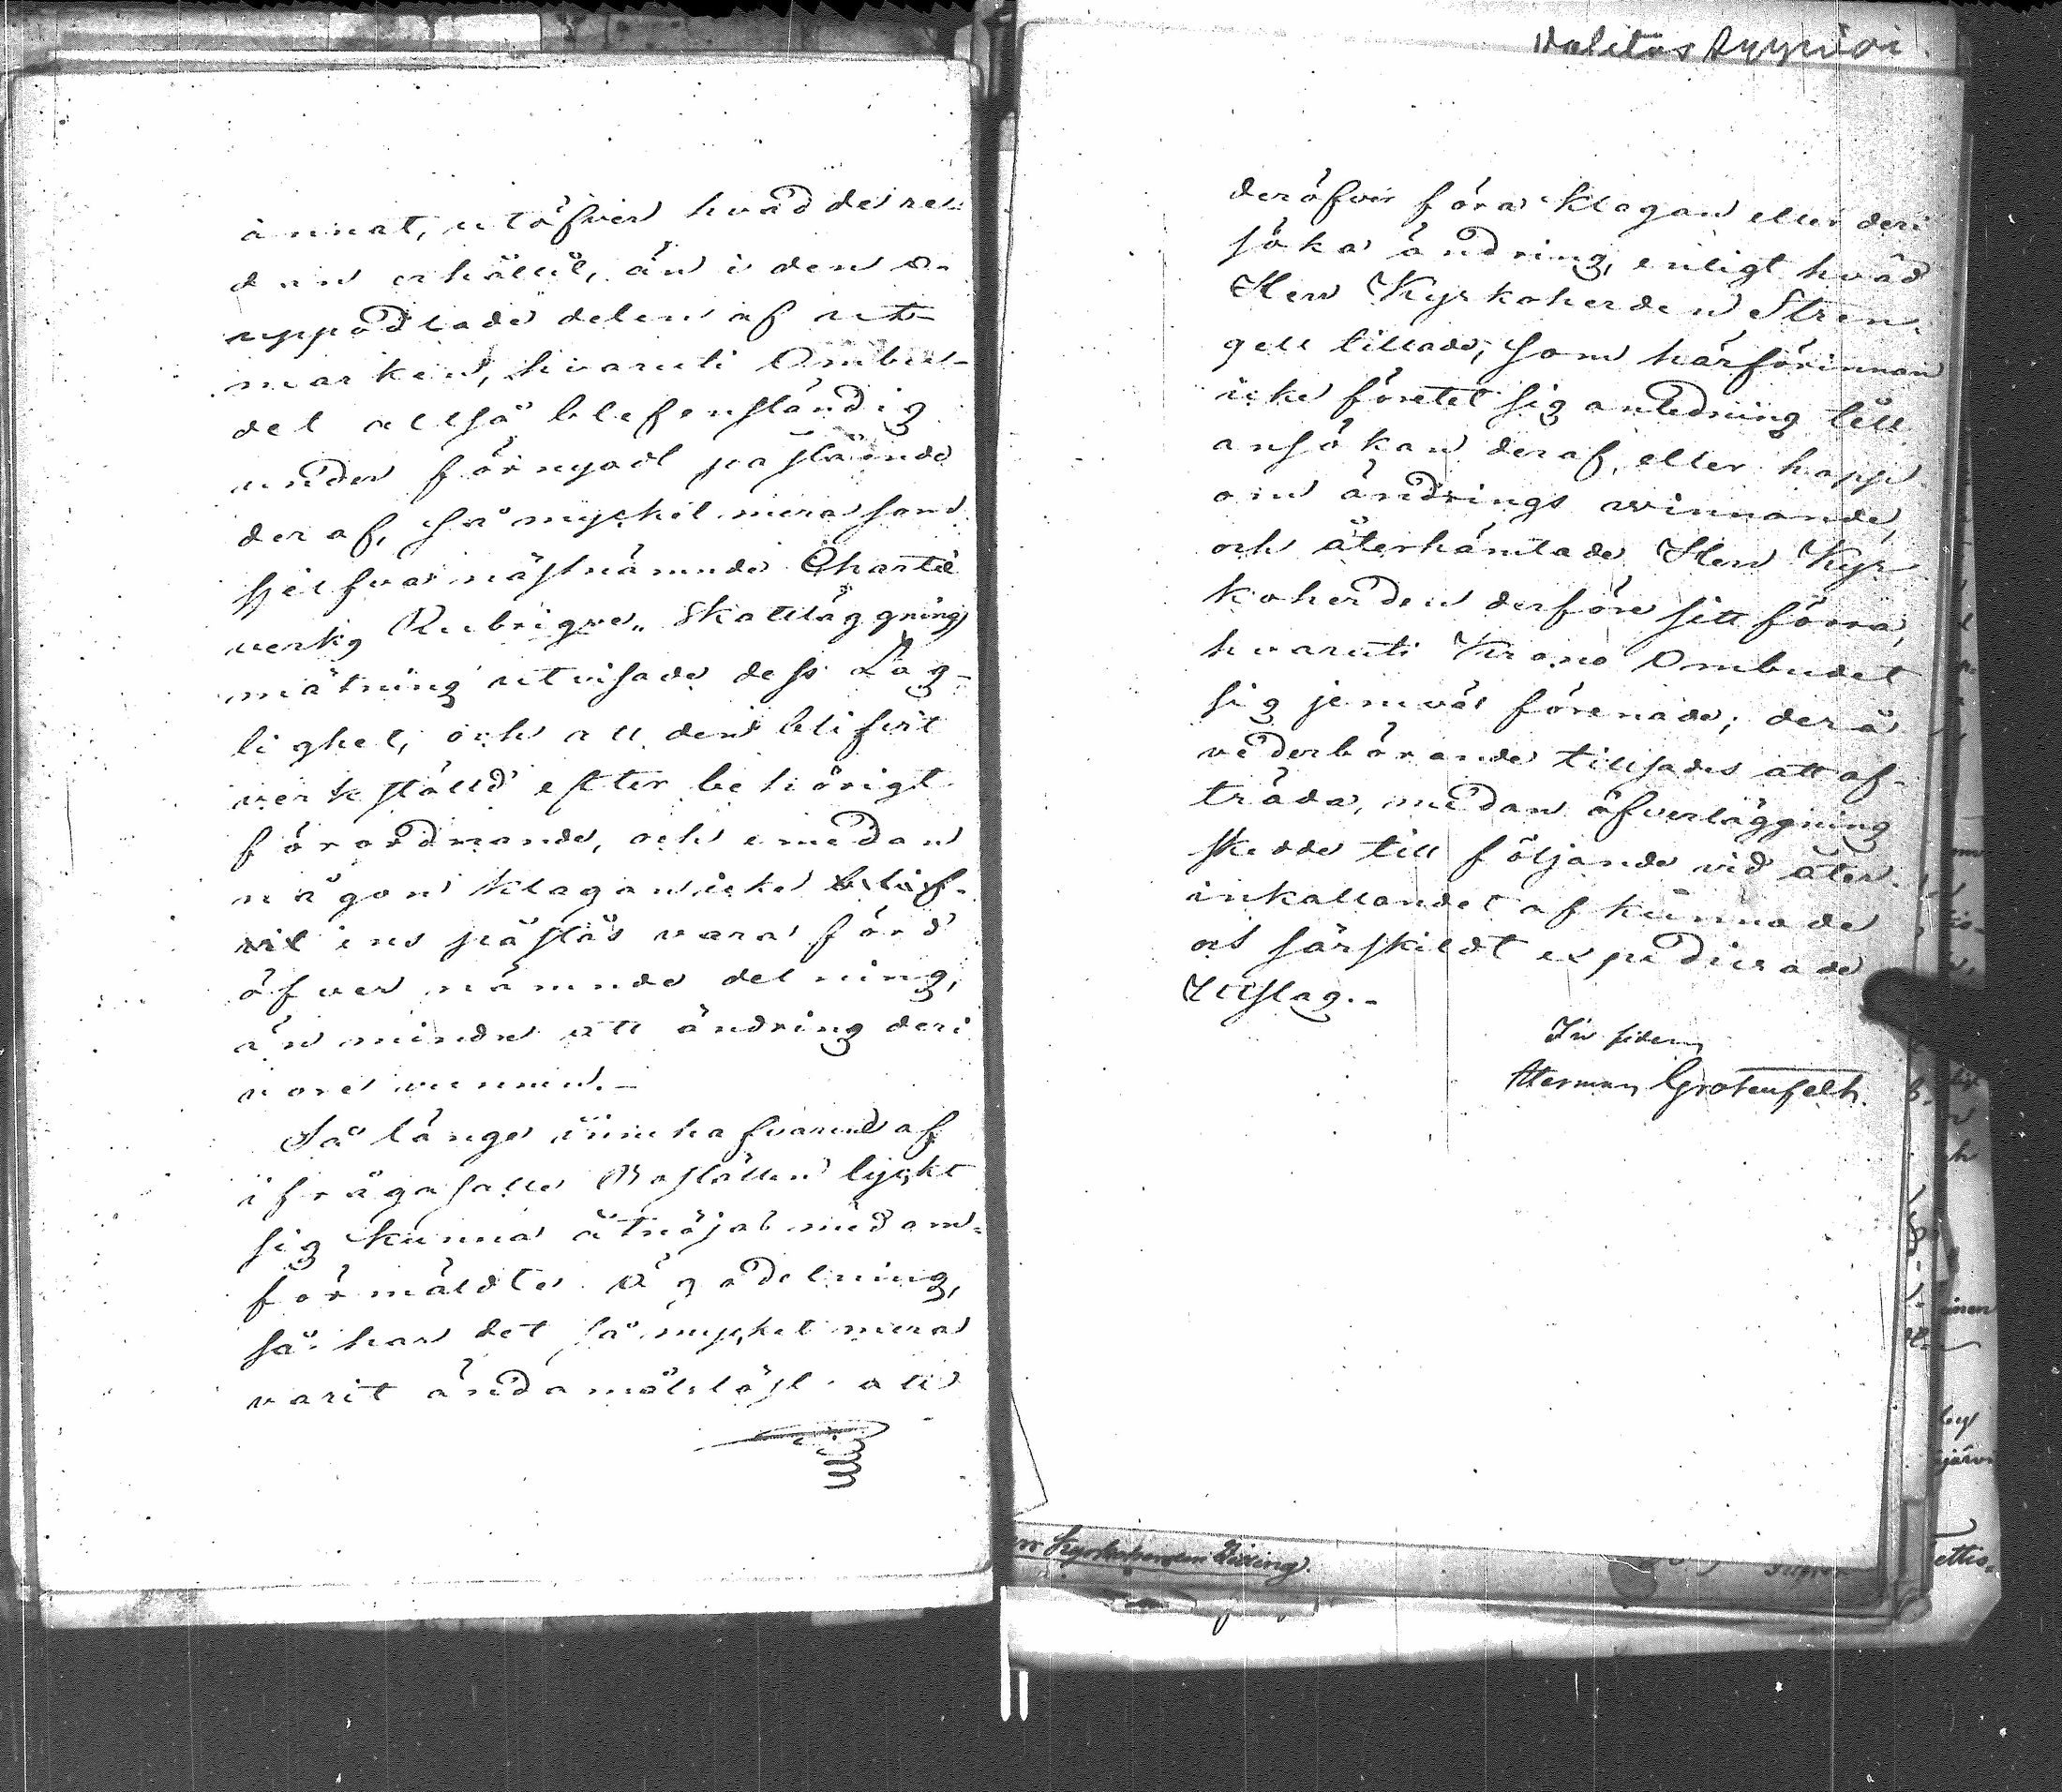 annat, utöfver hvad de re-
dan erhållit, än i den o-
uppodlade delen af ut-
marken, hvaruti Ombu-
det alltså blef enständig
under förnyadt påstående
deraf, så mycket mera som
sjelfva nästnämnde Charte
verks Rubrique „Skattläggnings
mätning utvisade dess Lag-
lighet, och att den blifvit
verkställd efter behörigt
förordnande, och emedan
någon klagan icke blif-
vit ens påstås vara förd
öfver nämnde delning,
än mindre att ändring deri
vore vunnen.-
Så länge innehafvarne af
ifrågasatte Boställen lyckt
sig kunna åtnöjas med om-
förmäldte Ägodelning,
så har det så mycket mera
varit ändamålslöst att
Valitus
deröfver föra klagan eller deri
söka ändring, enligt hvad
Herr Kyrkoherden Stren-
gell tillade, som härförinnan
icke företet sig anledning till
ansökan deraf, eller hopp
om ändrings winnande,
och återhämtade Herr Kyr-
koherden derföre sitt förra,
hvaruti Krono Ombudet
sig jemväl förenade; derå
vederbörande tillsades att af-
träda, medan öfverläggning
skedde till följande vid åter-
inkallandet afkunnade
och särskildt expedierade
Utslag.-
In fidem
Herman Grotenfelt.
Kyrkoherden